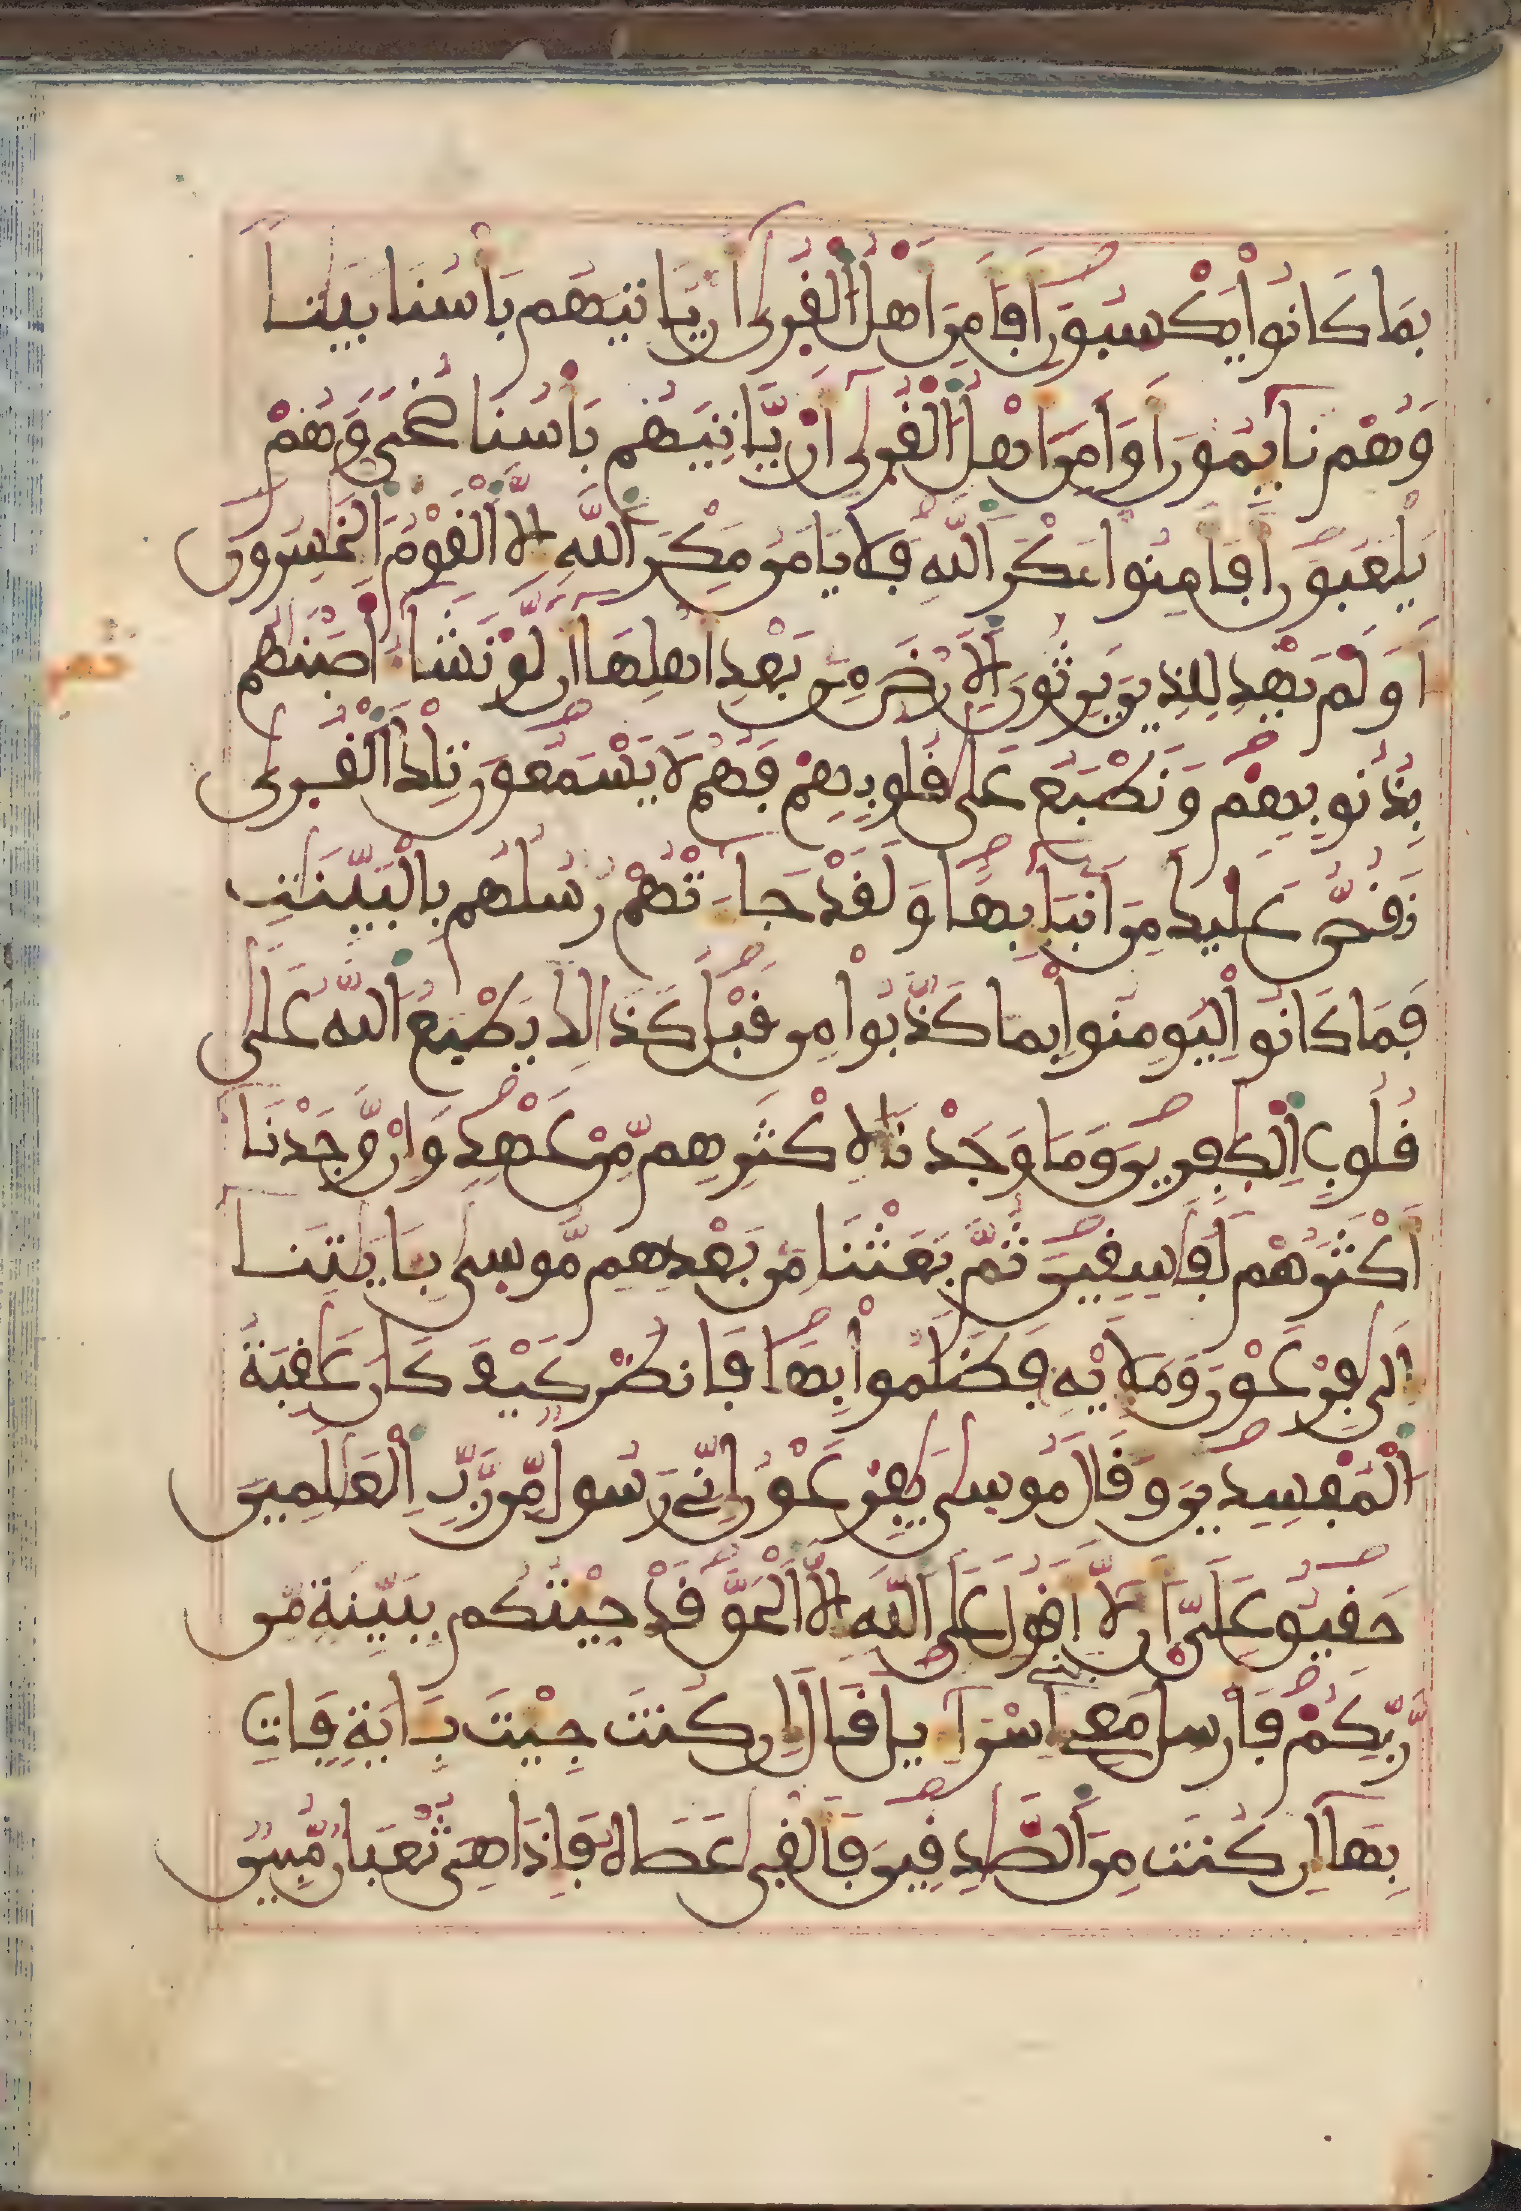 بِمَا كَانُوا يَكْسِبُونَ أَفَأَمِنَ أَهْلُ الْقُرَىٰ أَنْ يَّأْتِيَهُم بَأْسُنَا بَيَٰتاً
وَهُمْ نَآئِمُونَ أَوَ أَمِنَ أَهْلُ الْقُرَىٰ أَنْ يَّأْتِيَهُم بَأْسُنَا ضُحىً وَهُمْ
يَلْعَبُونَ أَفَأَمِنُوا مَكْرَ اللَّهِ فَلَا يَأْمَنُ مَكْرَ اللَّهِ إِلَّا الْقَوْمُ الْخَٰسِرُونَ
أَوَلَمْ يَهْدِ لِلذِينَ يَرِثُونَ الْأَرْضَ مِنۢ بَعْدِ أَهْلِهَا أَن لَّوْ نَشَآءُ أَصَبْنَٰهُم
بِذُنُوبِهِمْ وَنَطْبَعُ عَلَىٰ قُلُوبِهِمْ فَهُمْ لَا يَسْمَعُونَ تِلْكَ الْقُرَىٰ
نَقُصُّ عَلَيْكَ مِنَ انۢبَآئِهَا وَلَقَدْ جَآءَتْهُمْ رُسُلُهُم بِالْبَيِّنَٰتِ
فَمَا كَانُوا لِيُومِنُوا بِمَا كَذَّبُوا مِن قَبْلُ كَذَٰلِكَ يَطْبَعُ اللَّهُ عَلَىٰ
قُلُوبِ الْكَٰفِرِينَ وَمَا وَجَدْنَا لِأَكْثَرِهِم مِّنْ عَهْدٍ وَإِنْ وَّجَدْنَا
أَكْثَرَهُمْ لَفَٰسِقِينَ ثُمَّ بَعَثْنَا مِنۢ بَعْدِهِم مُّوسَىٰ بِـَٔايَٰتِنَا
إِلَىٰ فِرْعَوْنَ وَمَلَإِيْهِ فَظَلَمُوا بِهَا فَانظُرْ كَيْفَ كَانَ عَٰقِبَةُ
الْمُفْسِدِينَ وَقَالَ مُوسَىٰ يَٰفِرْعَوْنُ إِنِّي رَسُولٌ مِّن رَّبِّ الْعَٰلَمِينَ
حَقِيقٌ عَلَيَّ أَن لَّا أَقُولَ عَلَى اللَّهِ إِلَّا الْحَقَّ قَدْ جِئْتُكُم بِبَيِّنَةٍ مِّن
رَّبِّكُمْ فَأَرْسِلْ مَعِي بَنِي إِسْرَآءِيلَ قَالَ إِن كُنتَ جِئْتَ بِـَٔايَةٍ فَاتِ
بِهَا إِن كُنتَ مِنَ الصَّٰدِقِينَ فَأَلْقَىٰ عَصَاهُ فَإِذَا هِيَ ثُعْبَانٌ مُّبِينٌ